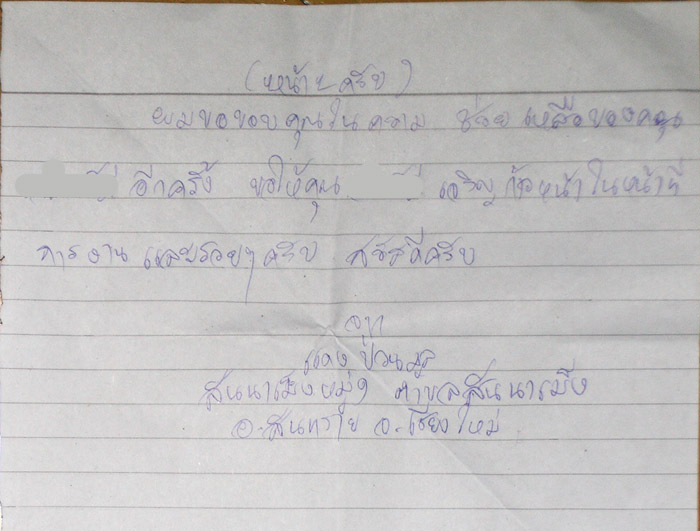 (หน้า ๒ ครับ)
ผมขอขอบคุณในความ ช่วย เหลือของคุณ
อีกครั้ง ขอให้คุณ เจริญก้าวหน้าในหน้าที่
การงาน และรวยๆครับ สวัสดีครับ
จาก
สันนาเม็งหมู่ ตำบลสันนาเม็ง
อ.สันทราย จ.เชียงใหม่